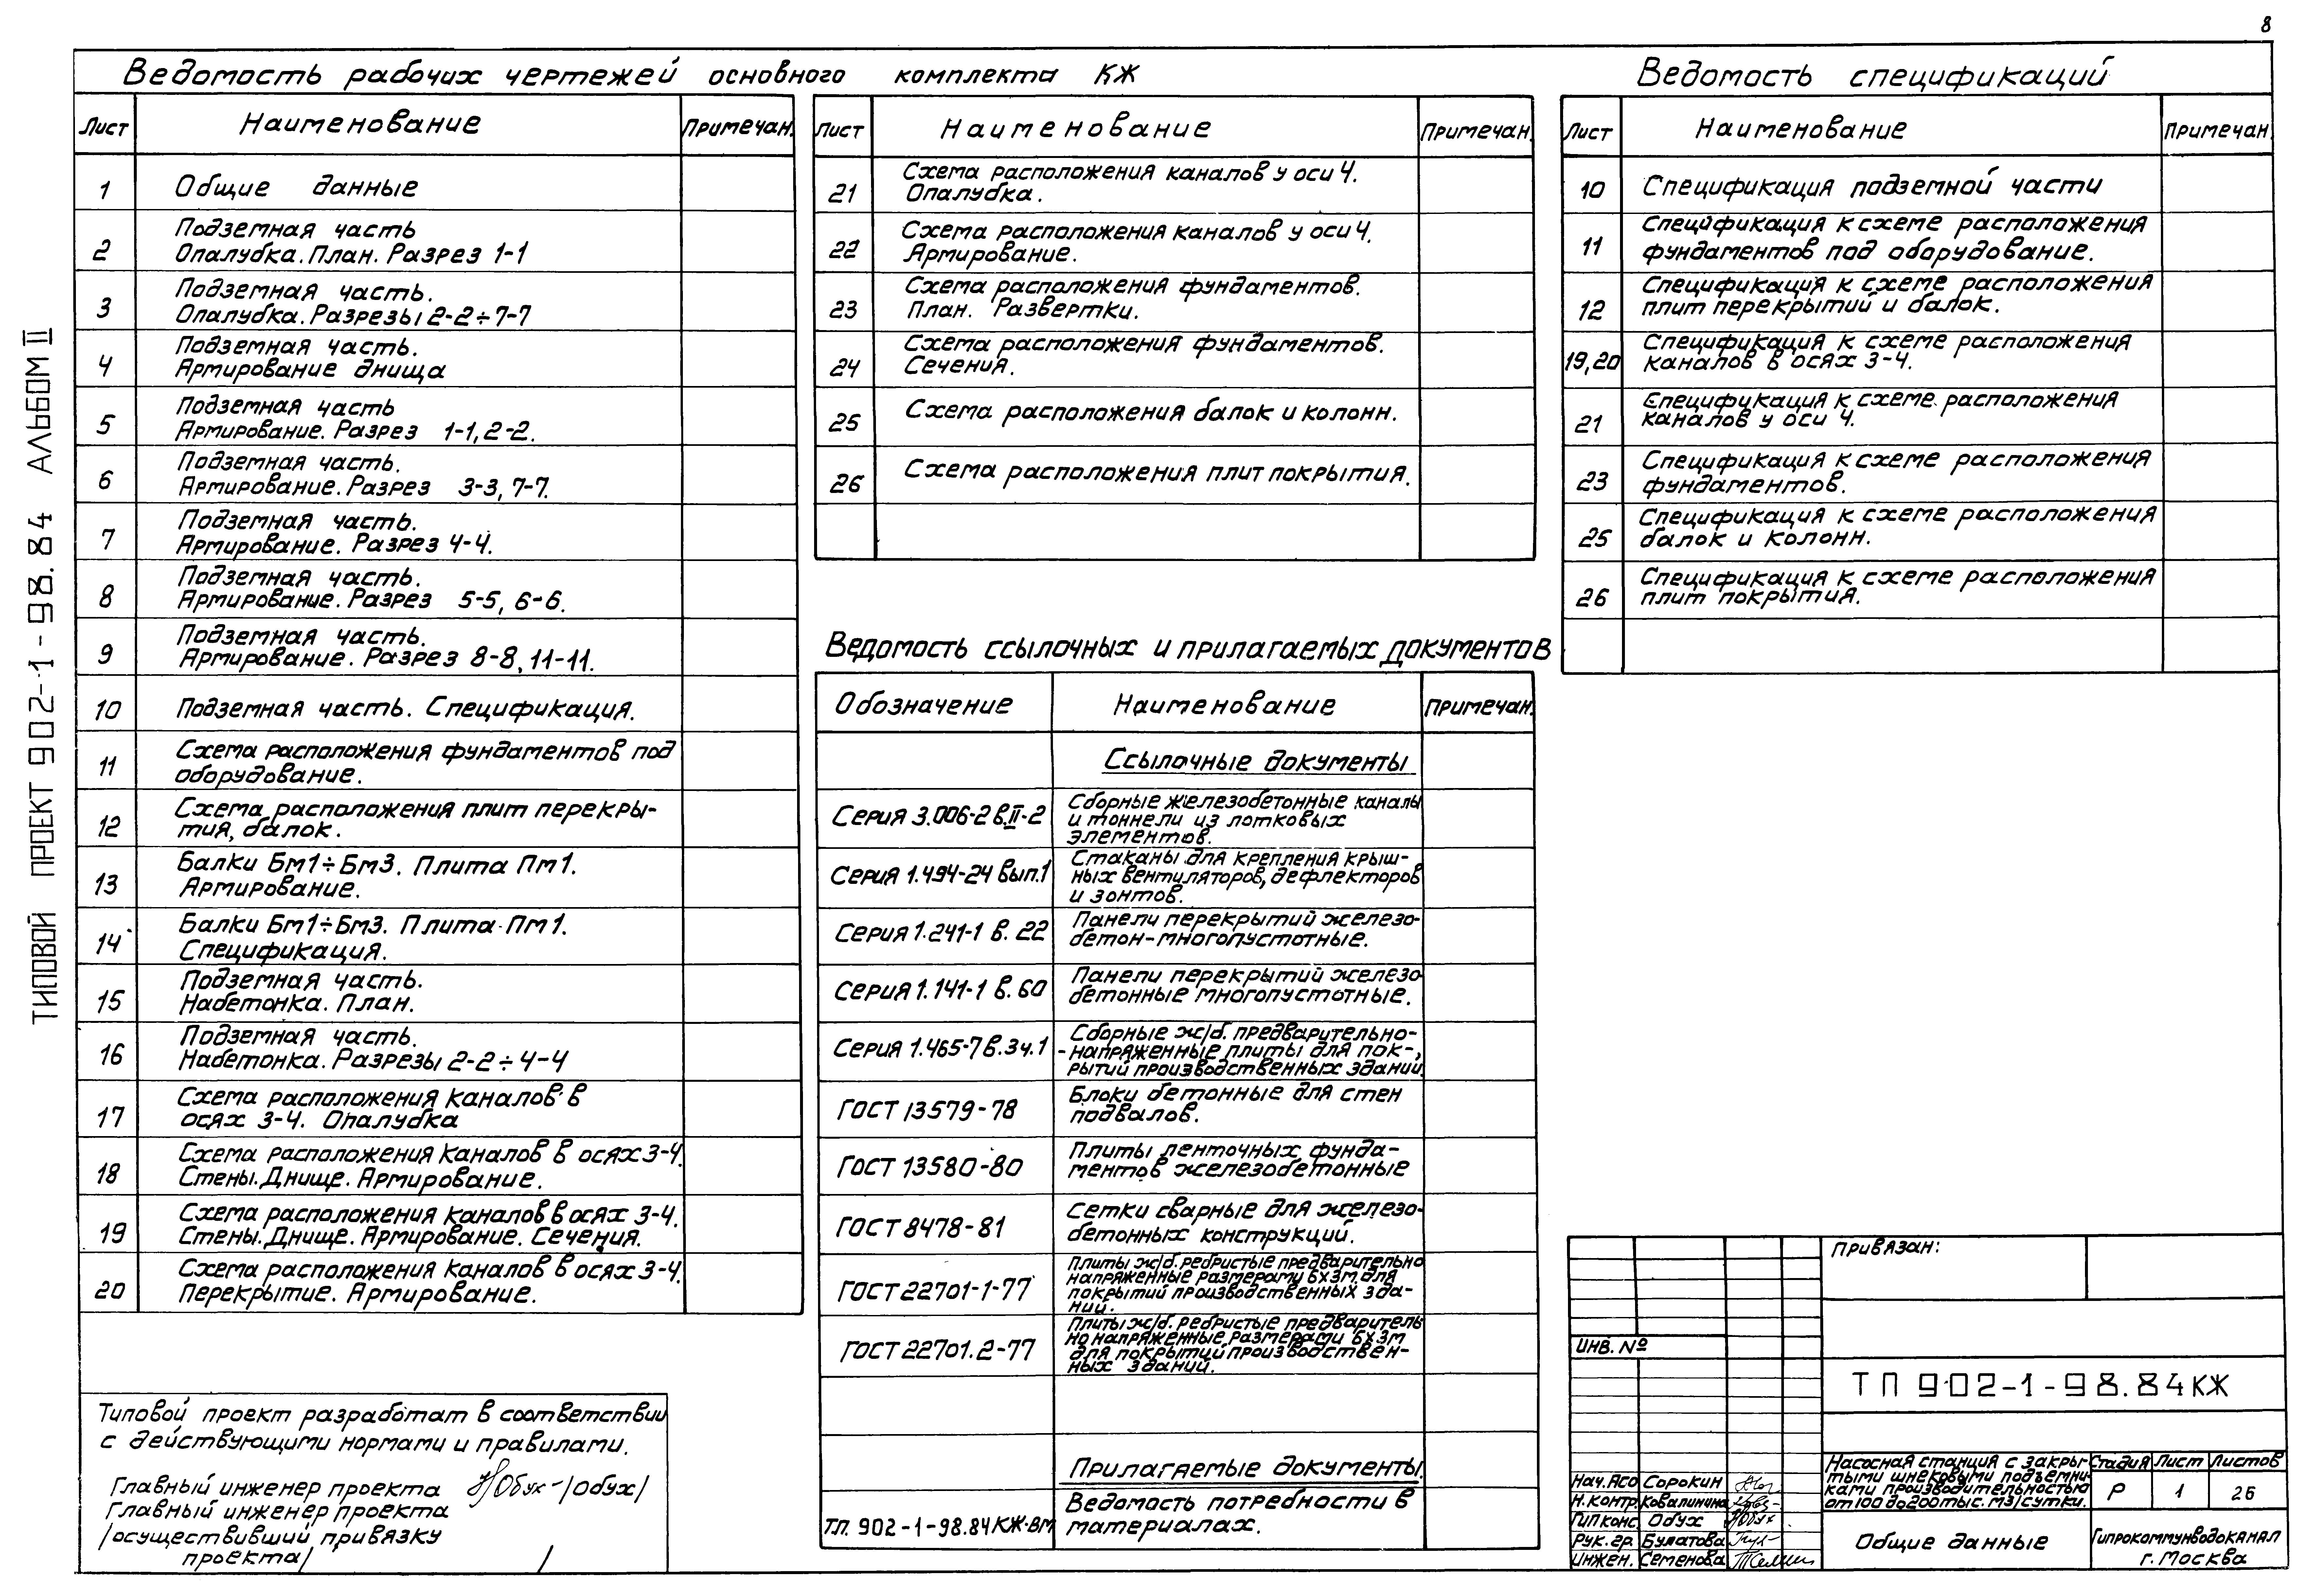 8
ТИПОВОЙ ПРОЕКТ 902-1-98.84 АЛЬБОМ II
Ведомость рабочих чертежей основного комплекта КЖ
Лист Наименование Примечан.
1 Общие данные
2 Подземная часть
Опалубка. План. Разрез 1-1
3 Подземная часть.
Опалубка. Разрезы 2-2÷7-7
4 Подземная часть.
Армирование днища
5 Подземная часть
Армирование. Разрез 1-1, 2-2.
6 Подземная часть.
Армирование. Разрез 3-3, 7-7.
7 Подземная часть.
Армирование. Разрез 4-4.
8 Подземная часть.
Армирование. Разрез 5-5, 6-6.
9 Подземная часть.
Армирование. Разрез 8-8, 11-11.
10 Подземная часть. Спецификация.
11 Схема расположения фундаментов под
оборудование.
12 Схема расположения плит перекры-
тия, балок.
13 Балки Бм1÷Бм3. Плита Пм1.
Армирование.
14 Балки Бм1÷Бм3. Плита Пм1.
Спецификация.
15 Подземная часть.
Набетонка. План.
16 Подземная часть.
Набетонка. Разрезы 2-2÷4-4
17 Схема расположения каналов в
осях 3-4. Опалубка
18 Схема расположения каналов в осях 3-4.
Стены. Днище. Армирование.
19 Схема расположения каналов в осях 3-4.
Стены. Днище. Армирование. Сечения.
20 Схема расположения каналов в осях 3-4.
Перекрытие. Армирование.
Типовой проект разработат в соответствии
с действующими нормами и правилами.
Главный инженер проекта /Обух/
Главный инженер проекта
/осуществивший привязку
проекта/ /
Лист Наименование Примечан.
21 Схема расположения каналов у оси 4.
Опалубка.
22 Схема расположения каналов у оси 4.
Армирование.
23 Схема расположения фундаментов.
План. Развертки.
24 Схема расположения фундаментов.
Сечения.
25 Схема расположения балок и колонн.
26 Схема расположения плит покрытия.
Ведомость ссылочных и прилагаемых документов
Обозначение Наименование Примечан.
Ссылочные документы
Серия 3.006-2 в.II-2 Сборные железобетонные каналы
и тоннели из лотковых
элементов.
Серия 1.494-24 вып.1 Стаканы для крепления крыш-
ных вентиляторов, дефлекторов
и зонтов.
Серия 1.241-1 в. 22 Панели перекрытий железо-
бетон-многопустотные.
Серия 1.141-1 в. 60 Панели перекрытий железо-
бетонные многопустотные.
Серия 1.465-7 в.3 ч.1 Сборные ж/б. предварительно-
-напряженные плиты для пок-
рытий производственных зданий.
ГОСТ 13579-78 Блоки бетонные для стен
подвалов.
ГОСТ 13580-80 Плиты ленточных фунда-
ментов железобетонные
ГОСТ 8478-81 Сетки сварные для железо-
бетонных конструкций.
ГОСТ 22701-1-77 Плиты ж/б. ребристые предварительно
напряженные размерами 6х3м для
покрытий производственных зда-
ний.
ГОСТ 22701.2-77 Плиты ж/б. ребристые предваритель
но напряженные размерами 6х3м
для покрытий производствен-
ных зданий.
Прилагаемые документы.
ТП. 902-1-98.84 КЖ-ВМ Ведомость потребности в
материалах.
Ведомость спецификаций
Лист Наименование Примечан.
10 Спецификация подземной части
11 Спецификация к схеме расположения
фундаментов под оборудование.
12 Спецификация к схеме расположения
плит перекрытий и балок.
19,20 Спецификация к схеме расположения
каналов в осях 3-4.
21 Спецификация к схеме расположения
каналов у оси 4.
23 Спецификация к схеме расположения
фундаментов.
25 Спецификация к схеме расположения
балок и колонн.
26 Спецификация к схеме расположения
плит покрытия.
Привязан:
ИНВ. №
ТП 902-1-98.84 КЖ
Нач. АСО Сорокин
Н.контр. Ковалинина
ГИП конс. Обух
Рук. гр. Булатова
Инжен. Семенова
Насосная станция с закры-
тыми шнековыми подъемни-
ками производительностью
от 100 до 200 тыс. м3/сутки.
Стадия Лист Листов
Р 1 26
Общие данные
Гипрокоммунводоканал
г. Москва